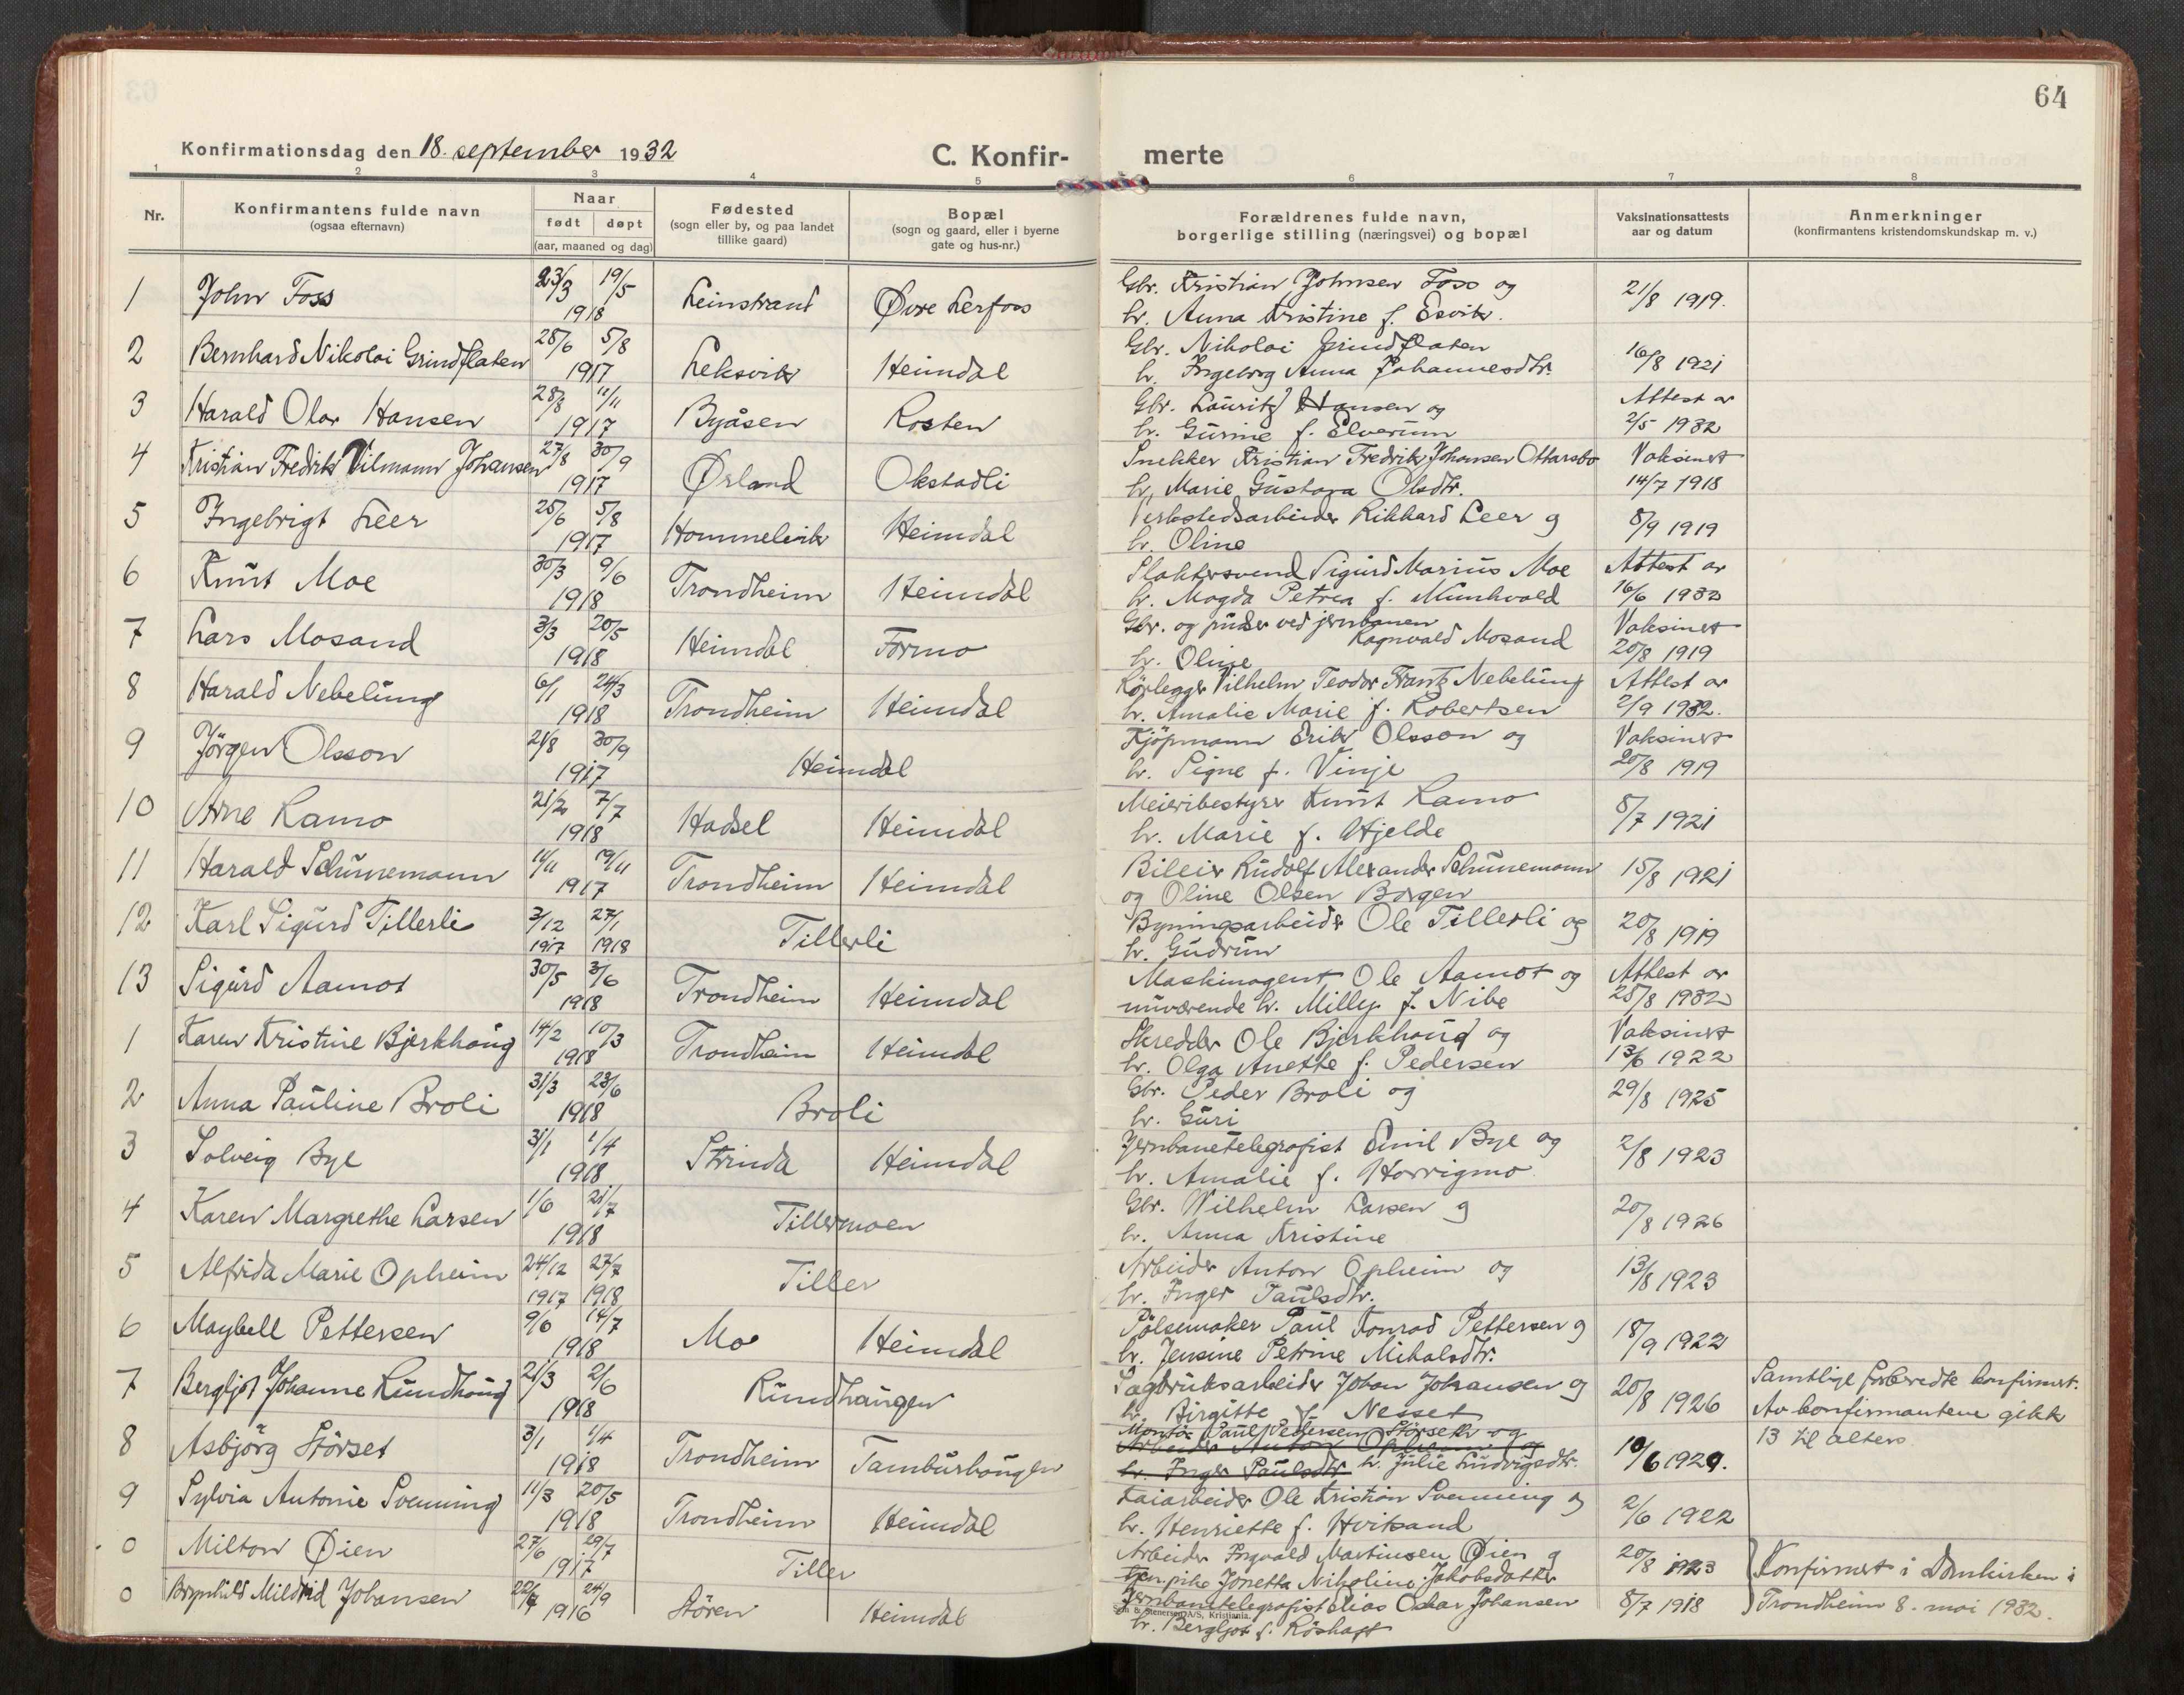 64
Konfirmationsdag den 18. september 1932
C. Konfir- merte
1 2 3 4 5 6 7 8
Nr.
Konfirmantens fulde navn
(ogsaa efternavn)
Naar
født døpt
(aar, maaned og dag)
Fødested
(sogn eller by, og paa landet
tillike gaard)
Bopæl
(sogn og gaard, eller i byerne
gate og hus-nr.)
Forældrenes fulde navn,
borgerlige stilling (næringsvei) og bopæl
Vaksinationsattests
aar og datum
Anmerkninger
(konfirmantens kristendomskundskap m. v.)
1 John Foss 23/3 19/5 1918 Leinstrand Øvre Lerfoss Gbr. Kristian Johnsen Foss og 21/8 1919.
h. Anna Kristine f. Esvik.
2 Bernhard Nikolai Grindflaten 28/6 5/8 1917 Leksvik Heimdal Gbr. Nikolai Grindflaten 16/8 1921
h. Ingeborg Anna Johannesdtr.
3 Harald Olav Hansen 28/8 11/11 1917 Byåsen Rosten Gbr. Lauritz Hansen og Attest av
h. Gurine f. Elverum 2/5 1932
4 Kristian Fredrik Vilmann Johansen 27/8 30/9 1917 Ørland Okstadli Snekker Kristian Fredrik Johansen Ottarsbo Vaksinert
h. Marie Gustava Olsdtr. 14/7 1918
5 Ingebrigt Leer 25/6 5/8 1917 Hommelvik Heimdal Verkstedsarbeider Rikhard Leer og 8/9 1919
h. Oline
6 Knut Moe 30/3 9/6 1918 Trondheim Heimdal Slaktersvend Sigurd Marius Moe Attest av
h. Magda Petrea f. Munkvold 16/6 1932
7 Lars Mosand 3/3 20/5 1918 Heimdal Formo Gbr. og pusser ved jernbanen Vaksinert
Ragnvald Mosand
h. Oline 20/8 1919
8 Harald Nebelung 6/1 24/3 1918 Trondheim Heimdal Rørlegger Vilhelm Teodor Frantz Nebelung Attest av
h. Amalie Marie f. Robertsen 2/9 1932.
9 Jörgen Olsson 21/8 30/9 1917 Heimdal Kjöpmann Erik Olsson og Vaksinert
h. Signe f. Vinje 20/8 1919
10 Arne Ramo 21/2 7/7 1918 Hadsel Heimdal Meieribestyrer Knut Ramo 8/7 1921
h. Marie f. Hjelde
11 Harald Schünemann 11/11 19/11 1917 Trondheim Heimdal Bileier Rudolf Alexander Schünemann 15/8 1921
og Oline Olsen Borgen
12 Karl Sigurd Tillerli 3/12 1917 27/1 1918 Tillerli Bygningsarbeider Ole Tillerli og 20/8 1919
h. Gudrun
13 Sigurd Aamot 30/5 3/6 1918 Trondheim Heimdal Maskinagent Ole Aamot og Attest av
nuværende h. Milly f. Nibe 25/8 1932
1 Karen Kristine Bjerkhaug 14/2 10/3 1918 Trondheim Heimdal Skredder Ole Bjerkhaug og Vaksinert
h. Olga Anette f. Pedersen 13/6 1922
2 Anna Pauline Broli 31/3 23/6 1918 Broli Gbr. Peder Broli og 29/8 1925
h. Guri
3 Solveig Bye 31/1 1/4 1918 Strinda Heimdal Jernbanetelegrafist Emil Bye og 2/8 1923
h. Amalie f. Horrigmo
4 Karen Margrethe Larsen 1/6 21/7 1918 Tillermoen Gbr. Wilhelm Larsen og 20/8 1926
h. Anna Kristine
5 Alfrida Marie Opheim 24/12 1917 27/7 1918 Tiller Arbeider Anton Opheim og 13/8 1923
h. Inger Paulsdtr.
6 Maybell Pettersen 9/6 14/7 1918 Mo Heimdal Pölsemaker Paul Konrad Pettersen og 18/9 1922
h. Jensine Petrine Mikalsdtr.
7 Bergljot Johanne Rundhaug 21/3 2/6 1918 Rundhaugen Sagbruksarbeider Johan Johansen og 20/8 1926 Samtlige forberedte konfirmert.
h. Birgitte f. Nesset Av konfirmantene gikk
8 Asbjörg Störset 3/1 1/4 1918 Trondheim Tamburhaugen Montör Paul Pedersen Störseth og 13 til alters
Arbeider Anton Opheim og
h. Inger Paulsdtr. h. Julie Ludvigsdtr. 10/6 1929.
9 Sylvia Antonie Svenning 11/3 20/5 1918 Trondheim Heimdal Kaiarbeider Ole Kristian Svenning og 2/6 1922
h. Henriette f. Hvitsand
0 Milton Øien 27/6 29/7 1917 Tiller Arbeider Ingvald Martinsen Øien og 20/8 1923 Konfirmert i Domkirken i
tjen.pike Jonetta Nikoline Jakobsdatter
0 Brynhild Mildrid Johansen 22/7 24/9 1916 Stören Heimdal Jernbanetelegrafist Elias Oskar Johansen 8/7 1918 Trondheim 8. mai 1932.
Stenersen A/S, Kristiania.
h. Bergljot f. Röshaft